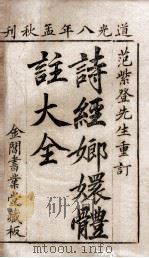 道光八年孟秋刊
范紫登先生重訂
詩經嫏嬛體
註大全
金閶書業堂藏板